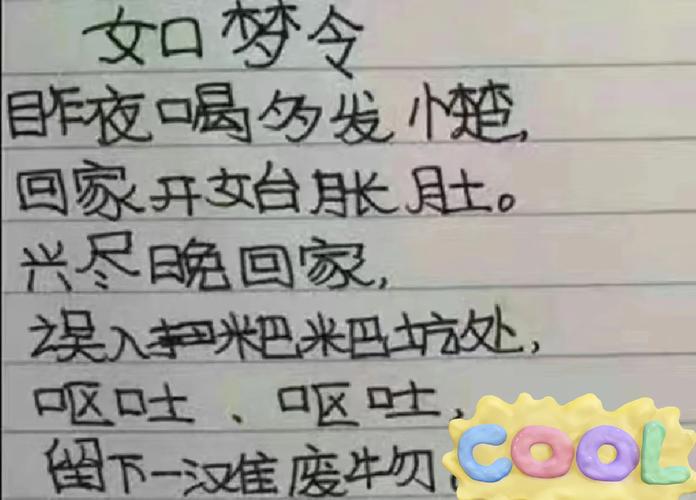 如梦令
昨夜喝多发憷,
回家开始胀肚。
兴尽晚回家,
误入粑粑坑处,
呕吐、呕吐,
留下一滩废物
COOL